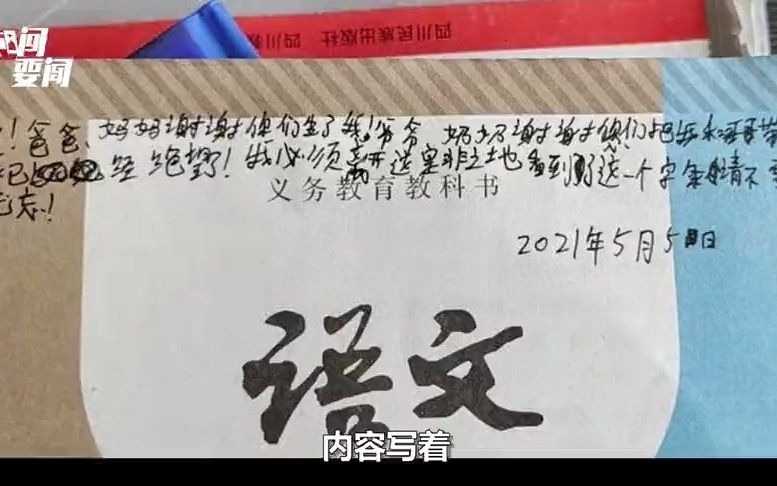 四川民族出版社 四川
要闻
！爸爸、妈妈谢谢你们生了我！爷爷 奶奶谢谢你们把 和哥哥带
已 经绝望！我必须离 这 非 地 看到了这一个字条 请不
义务教育教科书
2021年5月5日
语文
内容写着